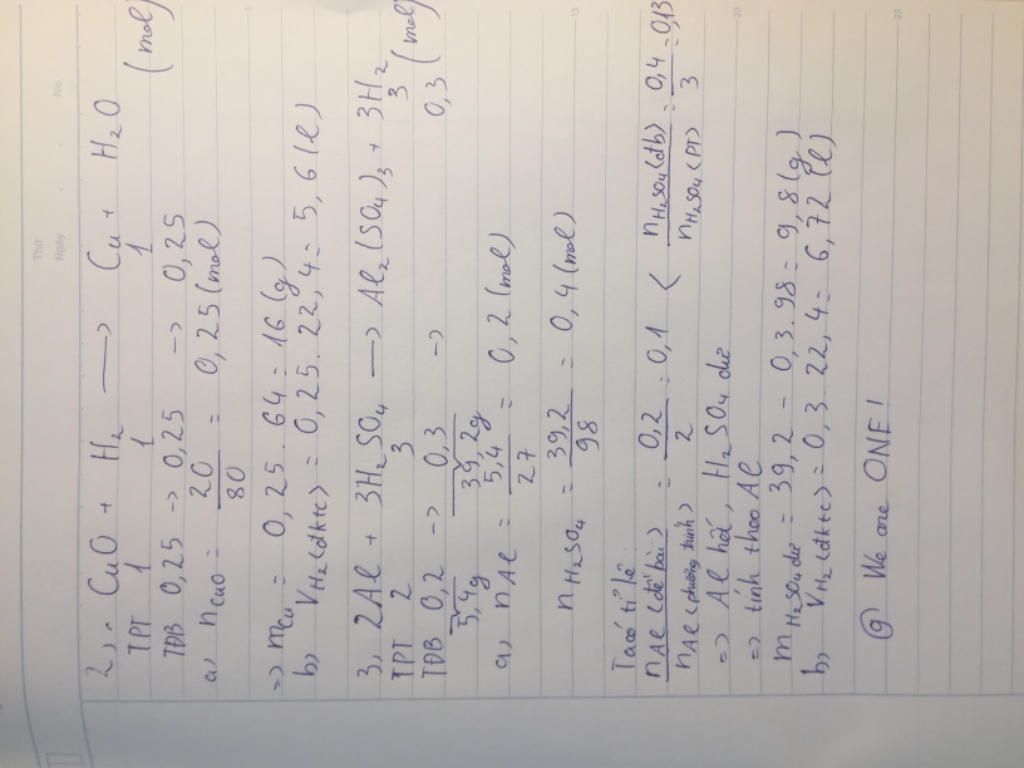 Thứ
Ngày
No.
5
15
20
25
2, . CuO + H₂ ⟶ Cu + H₂O
TPT 1 1 1 (mol)
TĐB 0,25 -> 0,25 -> 0,25
a, nCuO = 20/80 = 0,25 (mol)
=> mCu = 0,25 . 64 = 16 (g)
b, VH₂<đktc> = 0,25 . 22,4 = 5,6 (l)
3, 2Al + 3H₂SO₄ ⟶ Al₂(SO₄)₃ + 3H₂
TPT 2 3 3
TĐB 0,2 -> 0,3 -> 0,3 (mol)
5,4g 39,2g
a, nAl = 5,4/27 = 0,2 (mol)
nH₂SO₄ = 39,2/98 = 0,4 (mol)
Ta có tỉ lệ:
nAl<đề bài>/nAl<phương trình> = 0,2/2 = 0,1 < nH₂SO₄<đb>/nH₂SO₄<PT> = 0,4/3 = 0,13
=> Al hết, H₂SO₄ dư
=> tính theo Al
mH₂SO₄ dư = 39,2 - 0,3 . 98 = 9,8 (g)
b, VH₂<đktc> = 0,3 . 22,4 = 6,72 (l)
@ We are ONE!